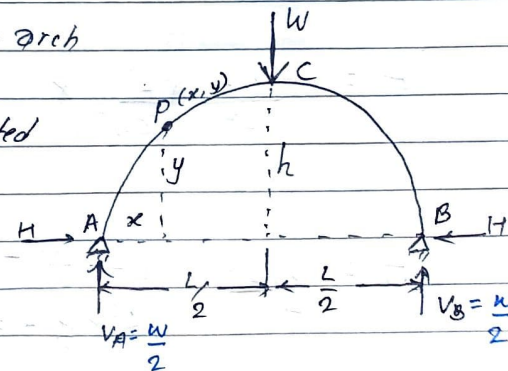 arch
W
C
P (x, y)
ted
y
h
A
x
B
H
H
L/2
L/2
V_A = W/2
V_B = W/2